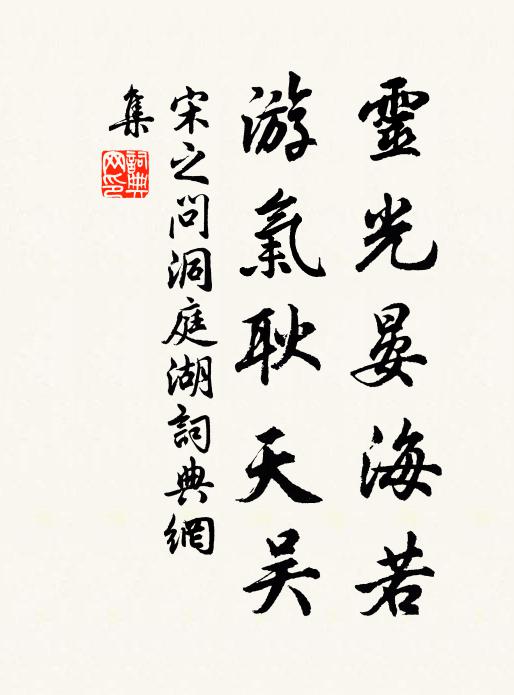 靈光晏海若
游氣耿天吴
宋之问洞庭湖詞典網
集
詞典网印